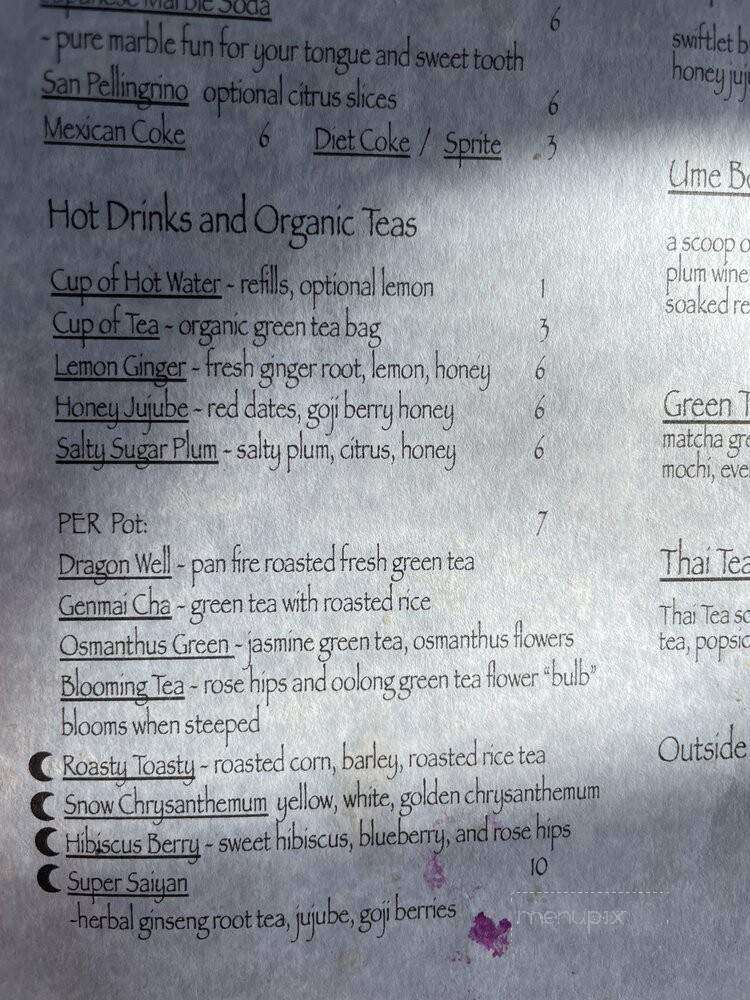 Japanese Marble Soda 6
- pure marble fun for your tongue and sweet tooth
San Pellingrino optional citrus slices 6
Mexican Coke 6 Diet Coke / Sprite 3
Hot Drinks and Organic Teas
Cup of Hot Water - refills, optional lemon 1
Cup of Tea - organic green tea bag 3
Lemon Ginger - fresh ginger root, lemon, honey 6
Honey Jujube - red dates, goji berry honey 6
Salty Sugar Plum - salty plum, citrus, honey 6
PER Pot: 7
Dragon Well - pan fire roasted fresh green tea
Genmai Cha - green tea with roasted rice
Osmanthus Green - jasmine green tea, osmanthus flowers
Blooming Tea - rose hips and oolong green tea flower "bulb"
blooms when steeped
Roasty Toasty - roasted corn, barley, roasted rice tea
Snow Chrysanthemum yellow, white, golden chrysanthemum
Hibiscus Berry - sweet hibiscus, blueberry, and rose hips
Super Saiyan 10
-herbal ginseng root tea, jujube, goji berries
swiftlet
honey
Ume
a scoop
plum wine
soaked
Green
matcha
mochi,
Thai Tea
Thai Tea
tea,
Outside
menupix